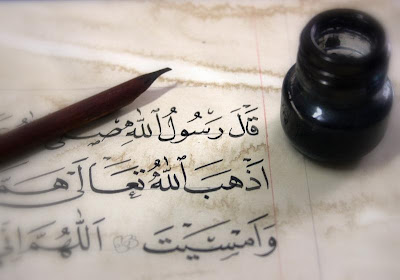 قَالَ رَسُولُ اللهِ صَلَّى
اَذْهَبَ اللهُ تَعَالَى
وَاَمْسَيْتَ اَللّٰهُمَّ اِنِّي